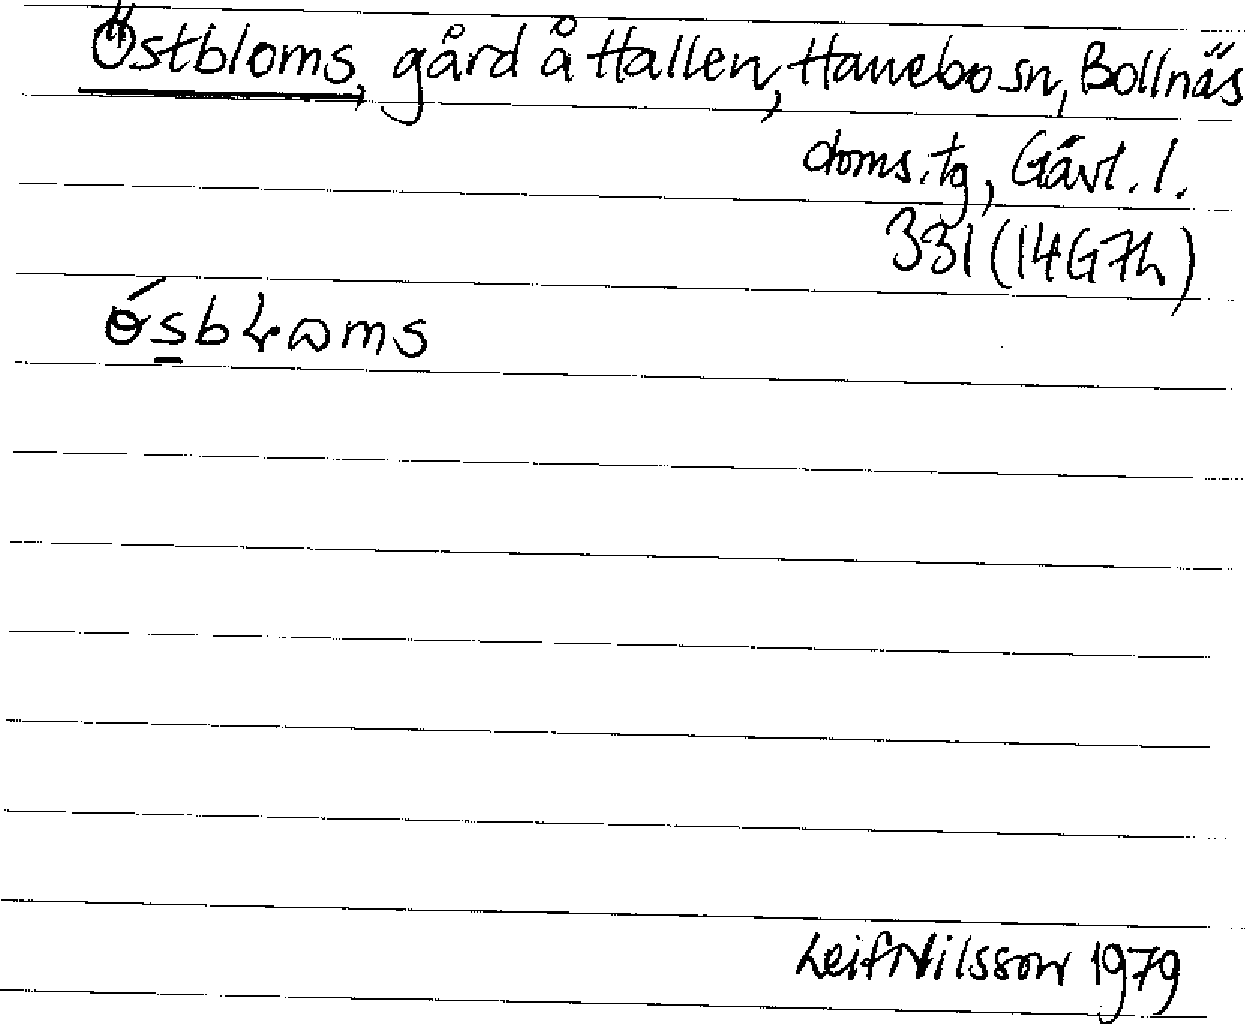 Östbloms, gård å Hallen, Hanebo sn, Bollnäs
doms. tg, Gävl. l.
331 (14G7h)
Leif Nilsson 1979